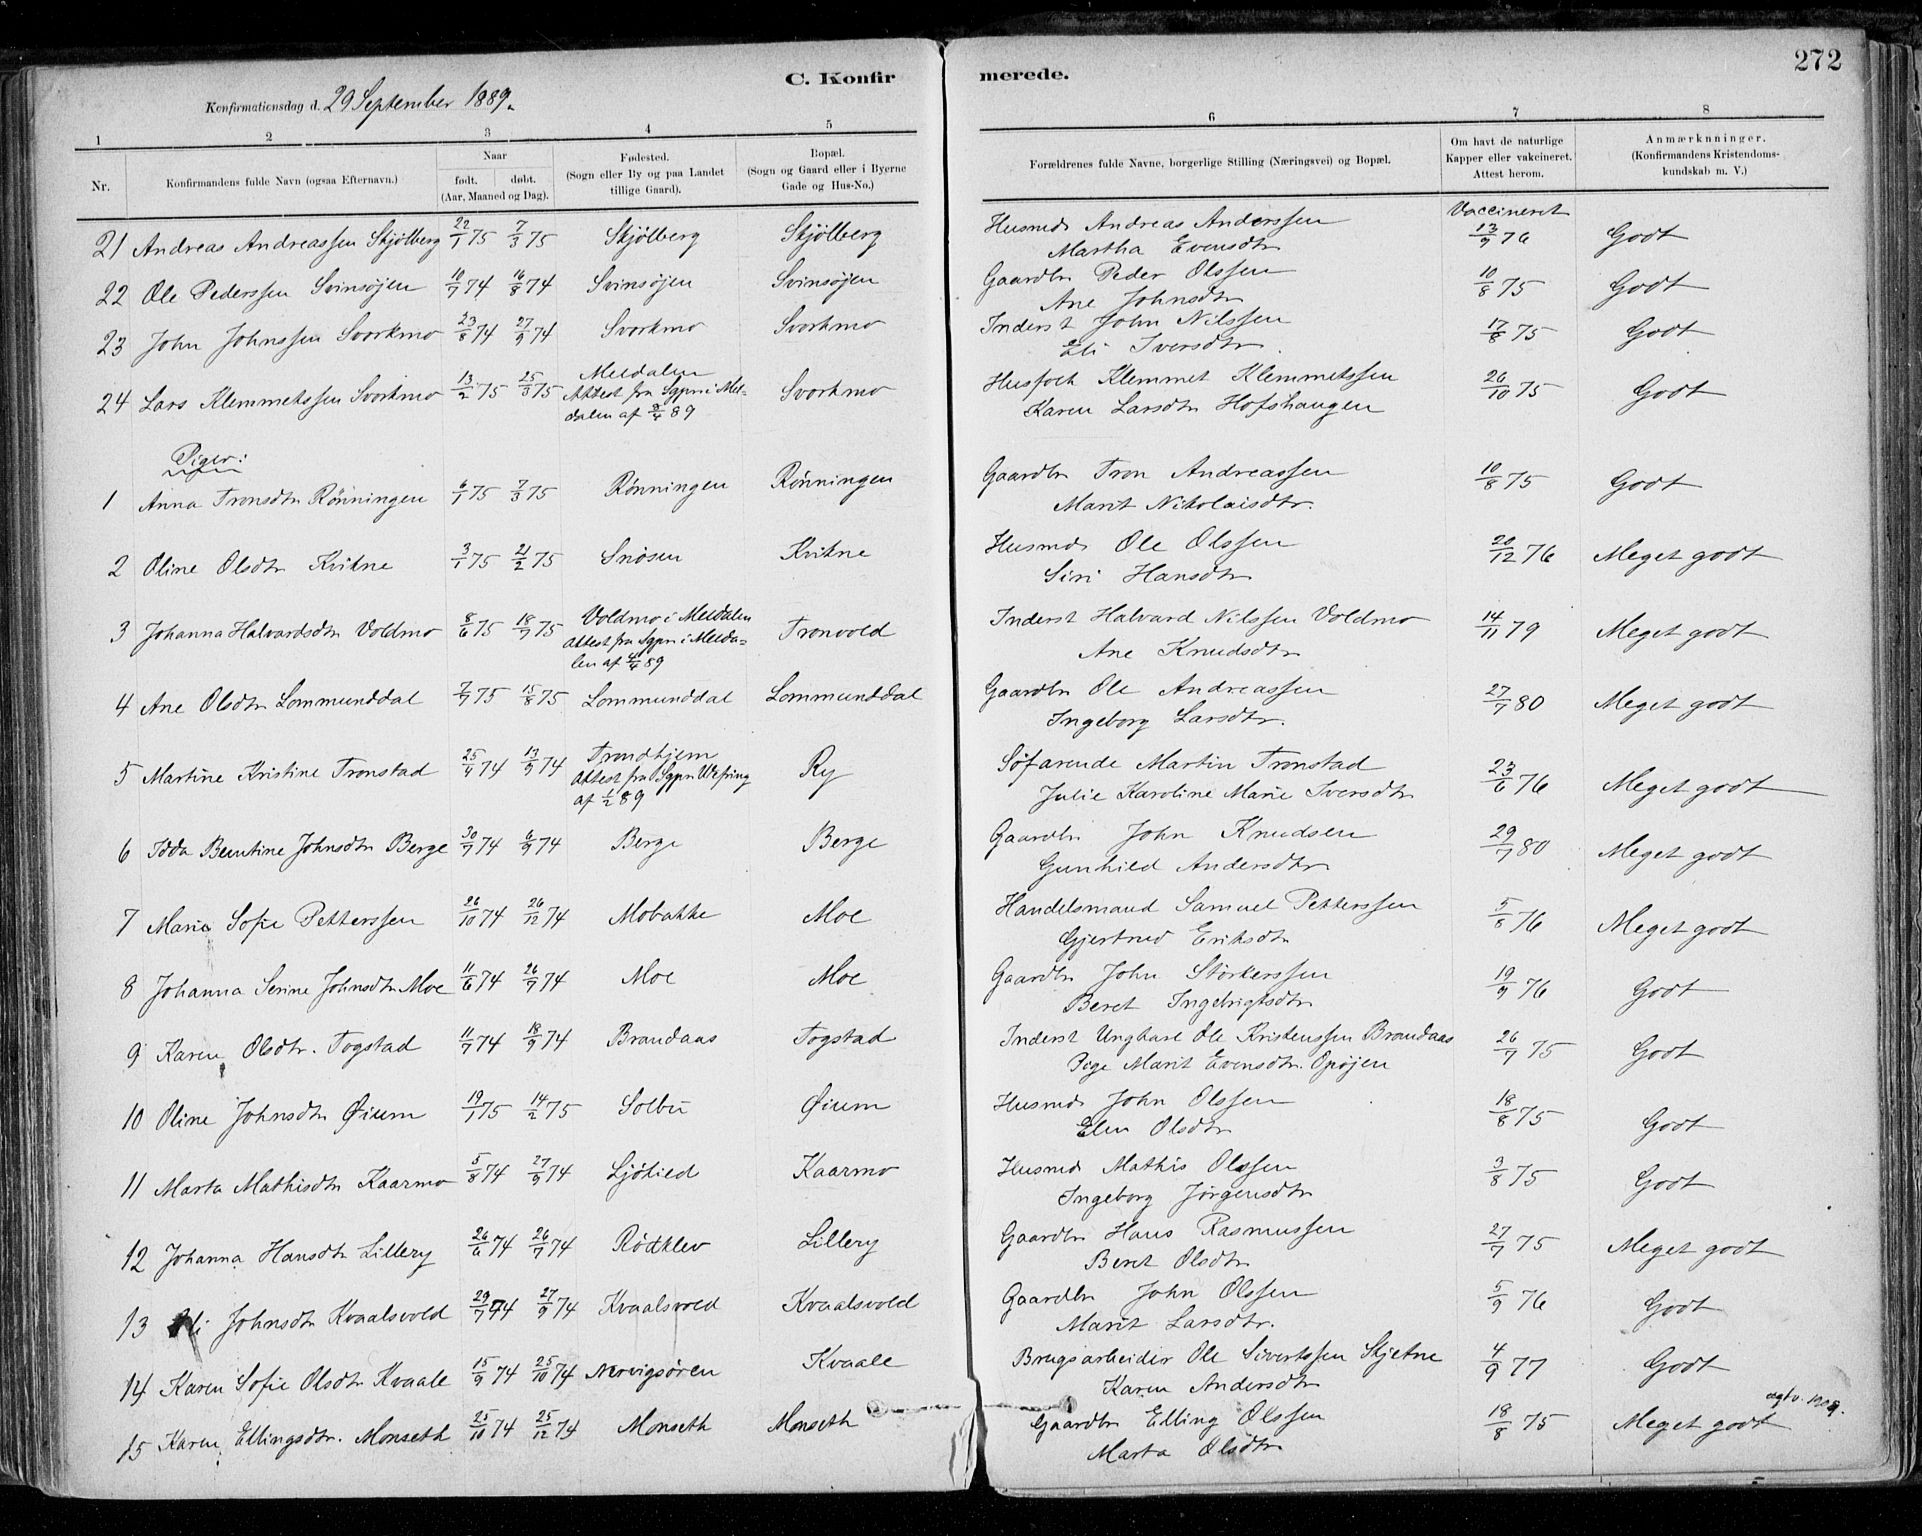 C. Konfirmerede.
272
Konfirmationsdag d. 29 September 1889.
1 2 3 4 5 6 7 8
Nr. | Konfirmandens fulde Navn (ogsaa Efternavn.) | Naar født. døbt. (Aar, Maaned og Dag). | Fødested. (Sogn eller By og paa Landet tillige Gaard). | Bopæl. (Sogn og Gaard eller i Byerne Gade og Hus-No.) | Forældrenes fulde Navne, borgerlige Stilling (Næringsvei) og Bopæl. | Om havt de naturlige Kapper eller vakcineret. Attest herom. | Anmærkninger. (Konfirmandens Kristendomskundskab m. V.)
21 Andreas Andreassen Skjølberg 22/1 75 7/3 75 Skjølberg Skjølberg Husmd Andreas Anderssen Martha Evensdtr Vaccineret 13/9 76 Godt
22 Ole Pederssen Svinsøjen 10/7 74 16/8 74 Svinsøjen Svinsøjen Gaardbr Peder Olssen Ane Johnsdtr 10/8 75 Godt
23 John Johnssen Svorkmo 23/8 74 27/9 74 Svorkmo Svorkmo Inderst John Nilssen Eli Iversdtr. 17/8 75 Godt
24 Lars Klemmetssen Svorkmo 13/2 75 25/3 75 Meldalen Attest fra Sgpr i Meldalen af 89 Svorkmo Husfolk Klemmet Klemmetssen Karen Larsdtr Hofshaugen 26/10 75 Godt
Piger:
1 Anna Tronsdtr Rønningen 6/1 75 7/3 75 Rønningen Rønningen Gaardbr Tron Andreassen Marit Nikolaisdtr. 10/8 75 Godt
2 Oline Olsdtr Kvikne 3/1 75 21/2 75 Snøsen Kvikne Husmd Ole Olssen Siri Hansdtr 20/12 76 Meget godt
3 Johanna Halvardsdtr Voldmo 8/6 75 18/7 75 Voldmo i Meldalen Attest fra Sgpr i Meldalen af 4/4 89 Tronvold Inderst Halvard Nilssen Voldmo Ane Knudsdtr 14/11 79 Meget godt
4 Ane Olsdtr Lommunddal 7/7 75 15/8 75 Lommunddal Lommunddal Gaardbr Ole Andreassen Ingeborg Larsdtr. 27/7 80 Meget godt
5 Martine Kristine Tronstad 25/4 74 13/9 74 Trondhjem Attest fra Sgpr Wefring af 1/2 89 Ry Søfarende Martin Tronstad Julie Karoline Marie Iversdtr 23/6 76 Meget godt
6 Idda Berntine Johnsdtr Berge 30/7 74 6/9 74 Berge Berge Gaardbr John Knudsen Gunhild Andersdtr 29/7 80 Meget godt
7 Marie Sofie Petterssen 26/10 74 26/12 74 Mobakke Moe Handelsmand Samuel Petterssen Gjertrud Eriksdtr 5/8 76 Meget godt
8 Johanna Serine Johnsdtr Moe 11/6 74 26/7 74 Moe Moe Gaardbr John Størkerssen Beret Ingebrigtsdtr 19/9 76 Godt
9 Karen Olsdtr. Togstad 11/7 74 18/9 74 Brandaas Togstad Inderst Ungkarl Ole Kristenssen Brandaas Pige Marit Evensdtr. Opøjen 26/7 75 Godt
10 Oline Johnsdtr Øium 19/1 75 14/2 75 Solbu Øium Husmd John Olssen Elen Olsdtr 18/8 75 Godt
11 Marta Mathisdtr Kaarmo 5/8 74 27/9 74 Ljøklied Kaarmo Husmd Mathis Olssen Ingeborg Jørgensdtr 3/8 75 Godt
12 Johanna Hansdtr Lillery 26/6 74 26/7 74 Rødklev Lillery Gaardbr Hans Rasmussen Beret Olsdtr 27/7 75 Meget godt
13 Johnsdtr Kvaalsvold 29/7 74 27/9 74 Kvaalsvold Kvaalsvold Gaardbr John Olssen Marit Larsdtr. 5/9 76 Godt
14 Karen Sofie Olsdtr Kvaale 15/9 74 25/10 74 Nervigsøren Kvaale Brugsarbeider Ole Sivertssen Skjetne Karen Andersdtr 4/9 77 Godt
15 Karen Ellingsdtr. Monseth 25/10 74 25/12 74 Monseth Monseth Gaardbr Elling Olssen Marta Olsdtr 18/8 75 Meget godt